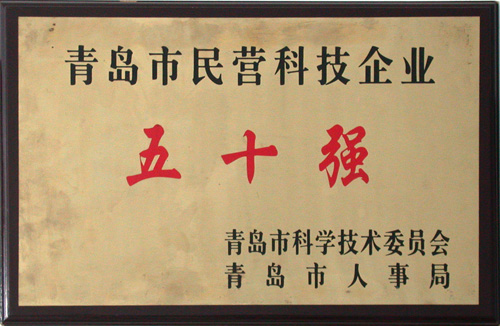 青岛市民营科技企业
五十强
青岛市科学技术委员会
青岛市人事局